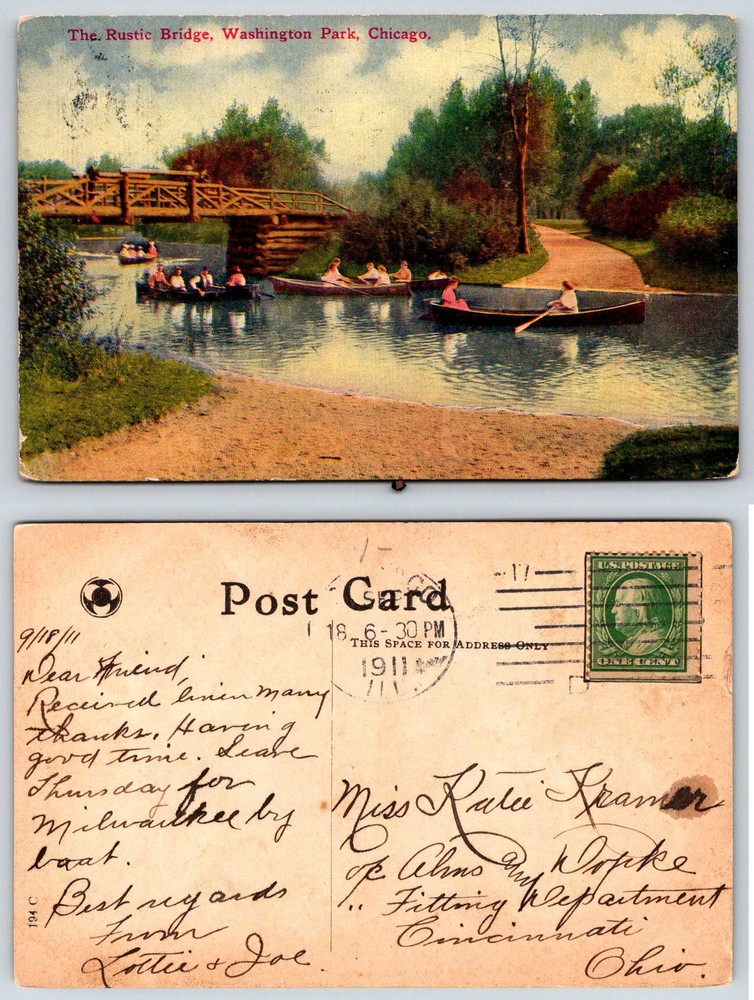 The Rustic Bridge, Washington Park, Chicago.
Post Card
THIS SPACE FOR ADDRESS ONLY
SEP
18 6-30 PM
1911
ILL.
U.S. POSTAGE
ONE CENT
9/18/11
Dear Friend,
Received linen many
thanks. Having
good time. Leave
Thursday for
Milwaukee by
boat.
Best regards
From
Lottie & Joe.
Miss Katie Kramer
c/o Alms and Dopke
" Fitting Department
Cincinnati
Ohio.
194 C